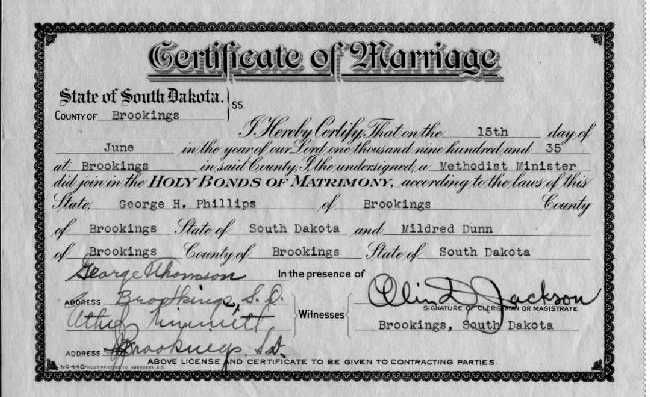 Certificate of Marriage
State of South Dakota. } SS
COUNTY OF Brookings
I Hereby Certify, That on the 15th day of
June in the year of our Lord one thousand nine hundred and 35
at Brookings in said County, I, the undersigned, a Methodist Minister
did join in the HOLY BONDS OF MATRIMONY, according to the laws of this
State, George H. Phillips of Brookings County
of Brookings State of South Dakota and Mildred Dunn
of Brookings County of Brookings State of South Dakota
George Thomson In the presence of
ADDRESS Brookings, S.D. Olin D. Jackson
Witnesses SIGNATURE OF CLERGYMAN OR MAGISTRATE
Brookings, South Dakota
ADDRESS Brookings S.D.
ABOVE LICENSE AND CERTIFICATE TO BE GIVEN TO CONTRACTING PARTIES.